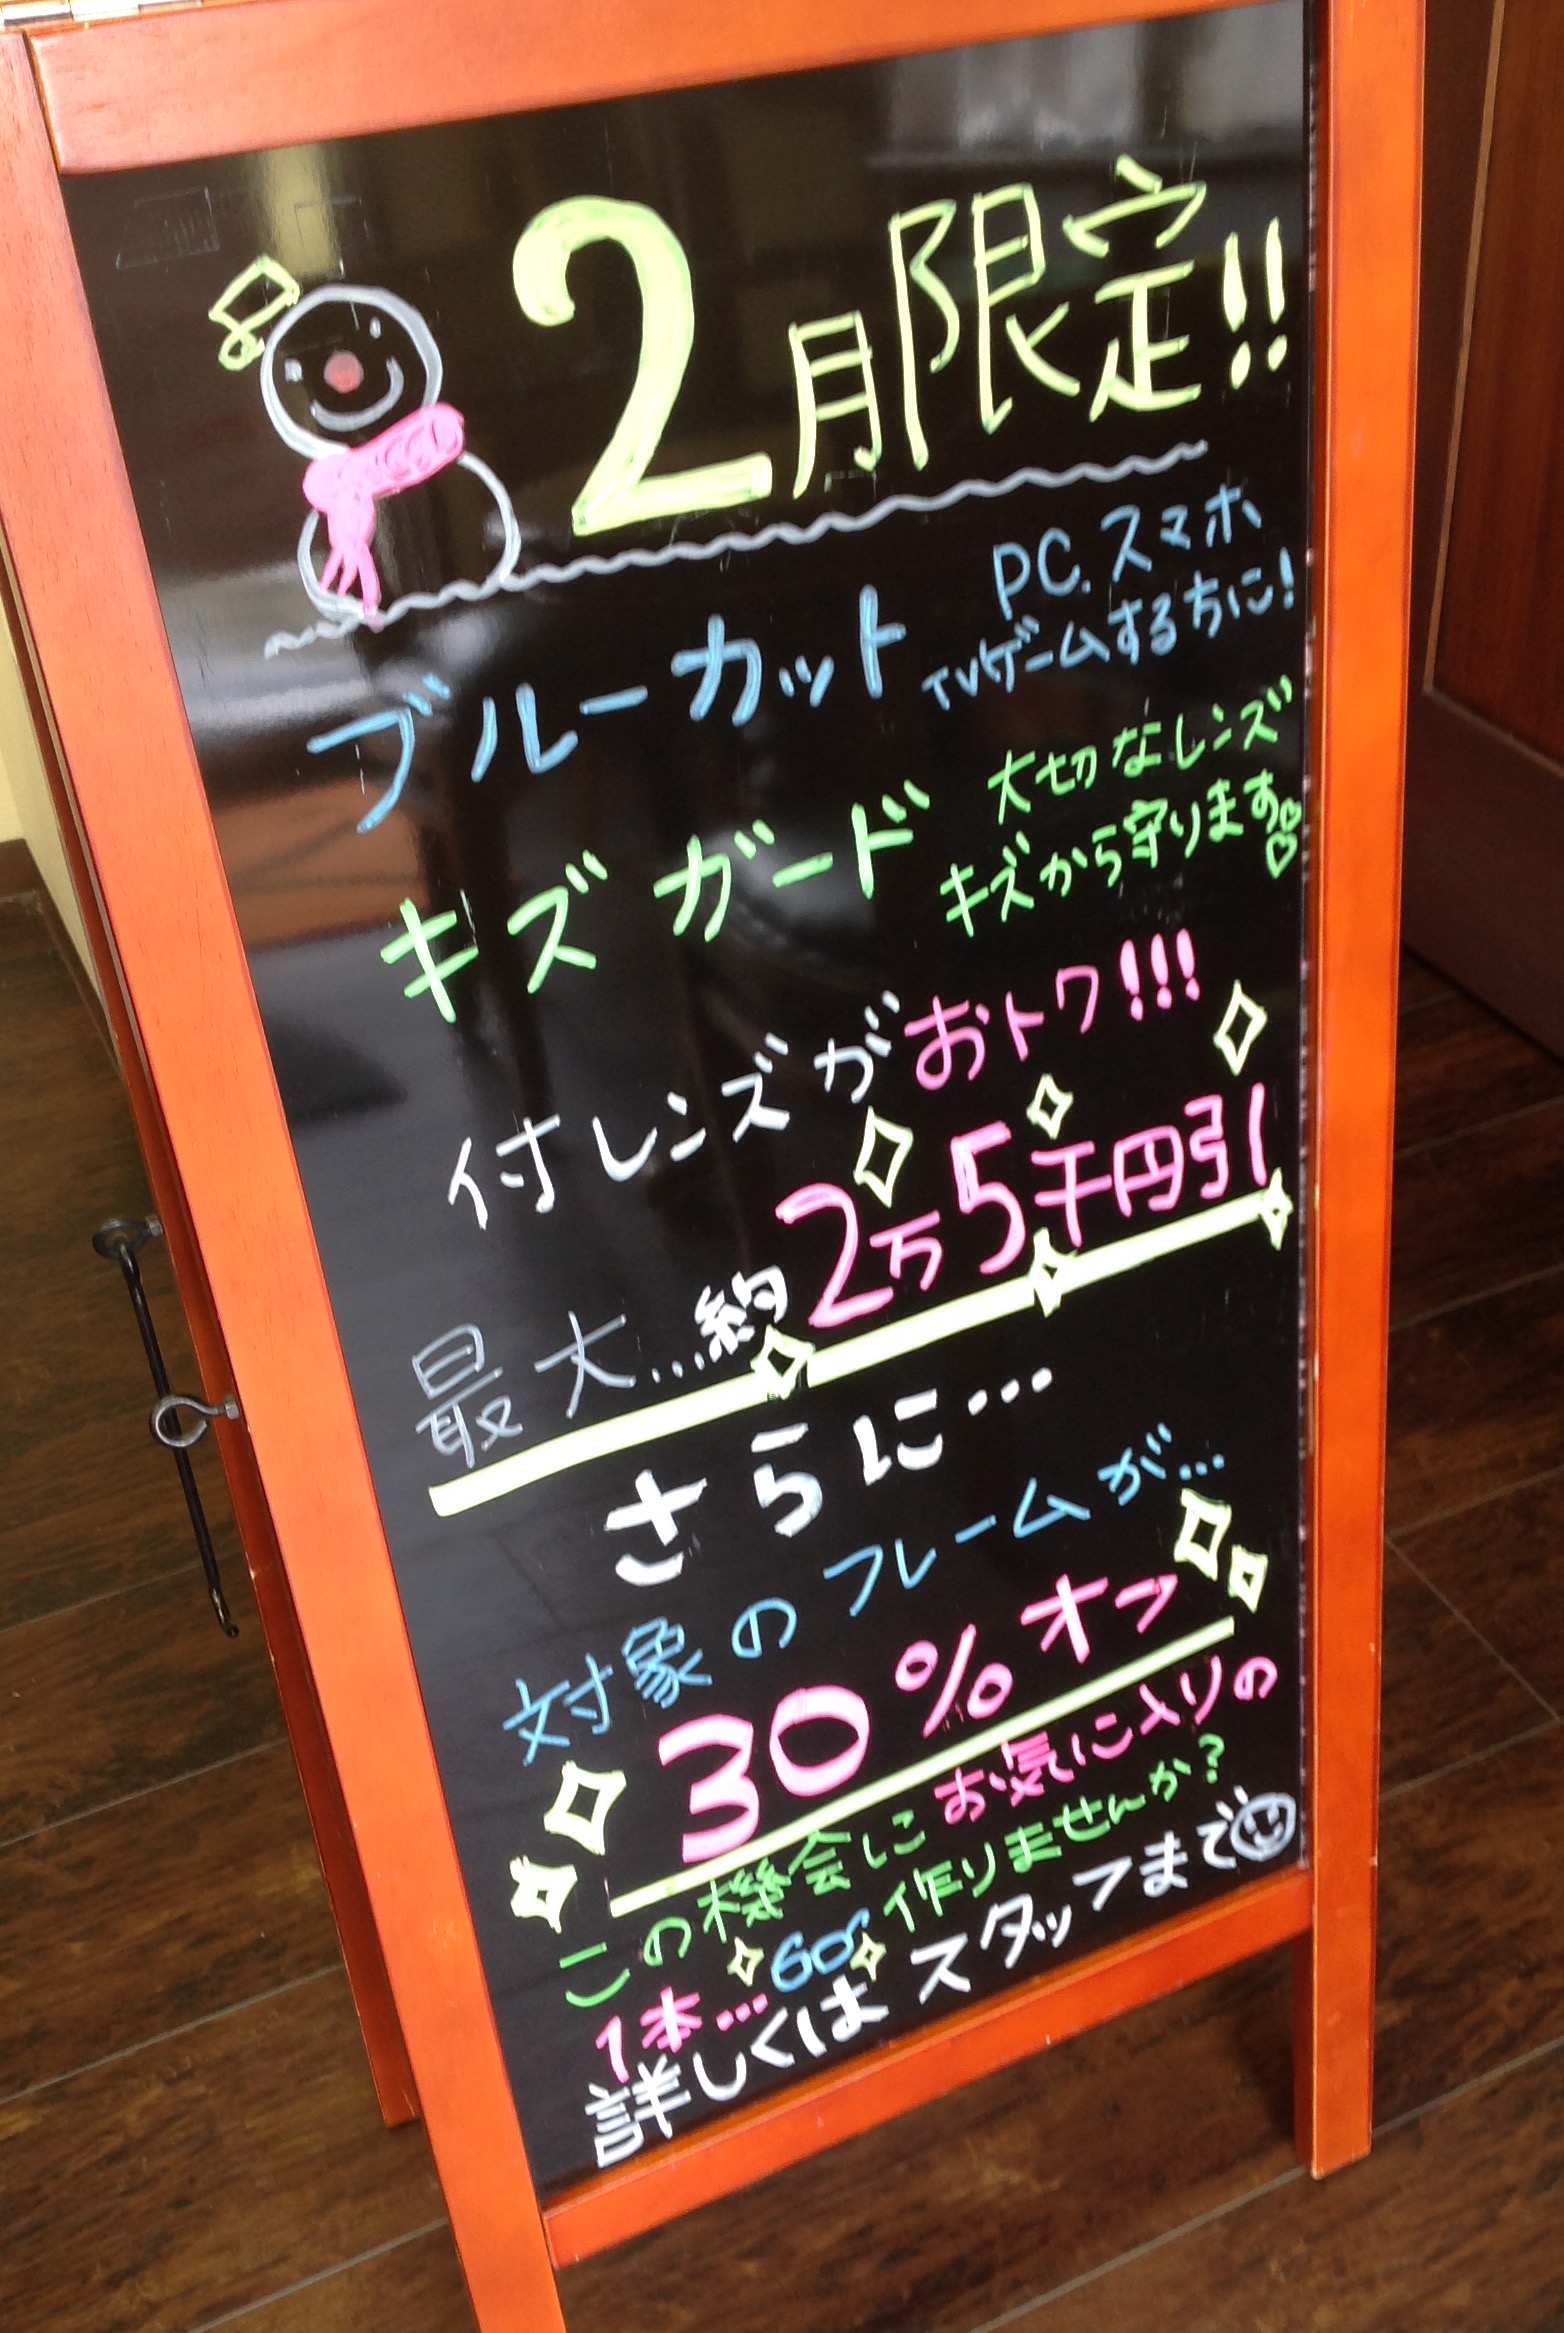 2月限定!!
ブルーカット
PC.スマホ
TVゲームする方に!
キズガード
大切なレンズ
キズから守ります♡
付レンズがおトク!!!
最大…約2万5千円引
さらに…
対象のフレームが…
30%オフ
この機会にお気に入りの
1本… 作りませんか?
詳しくはスタッフまで